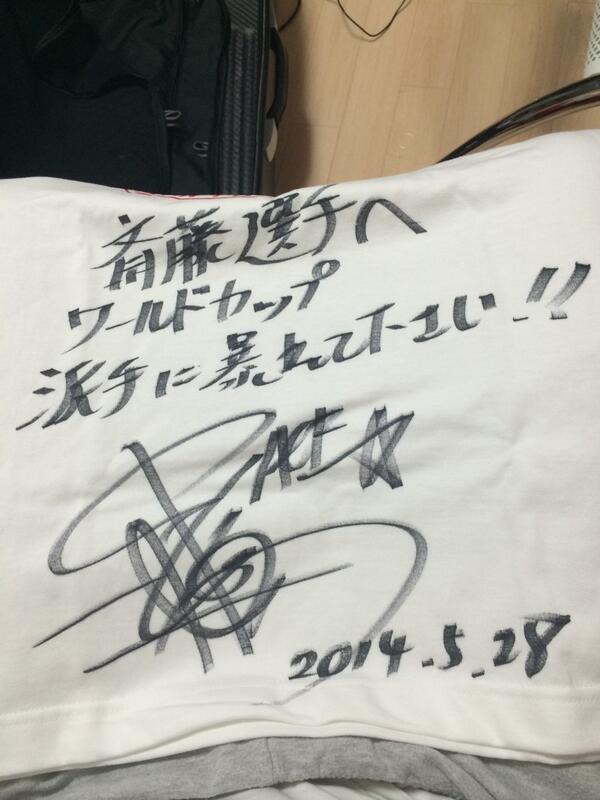 斉藤選手へ
ワールドカップ
派手に暴れて下さい.!!
2014.5.28